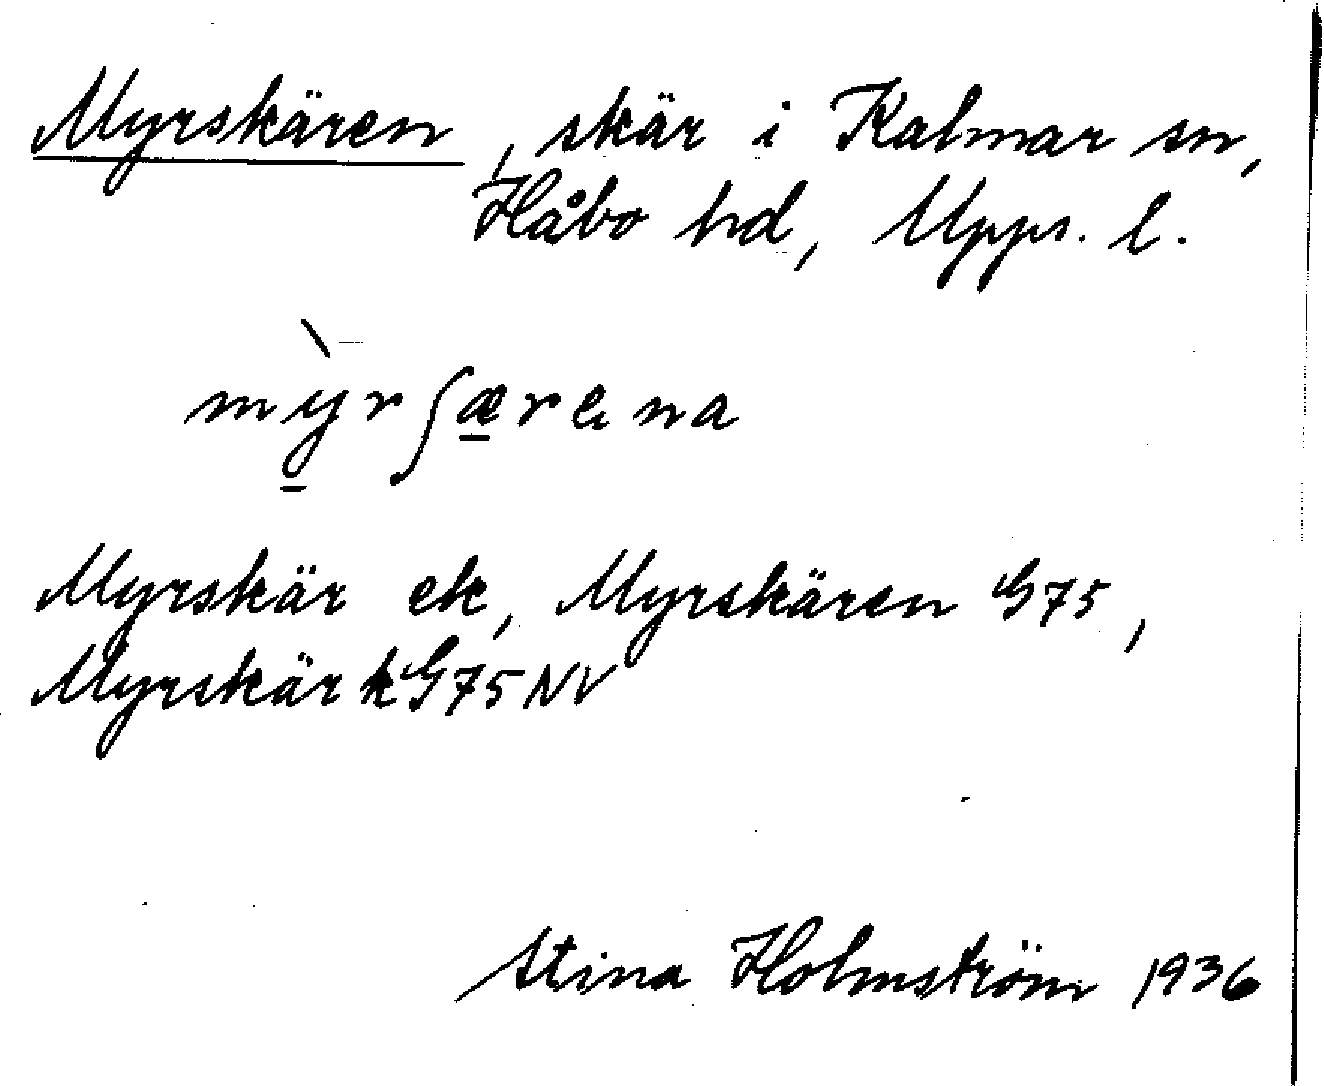 Myrskären, skär i Kalmar sn,
Håbo hd, Upps. l.
mỳrʃærena
Myrskär ek, Myrskären G75,
Myrskär k G75 NV
Stina Holmström 1936